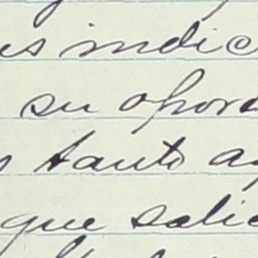 es indic
su opor
tanto a
que sali